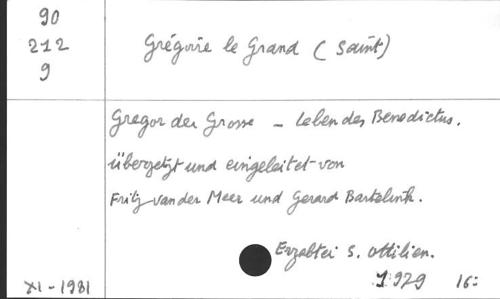 90
212
9
Grégoire le Grand (Saint)
Gregor der Grosse - Leben des Benedictus.
übersetzt und eingeleitet von
Fritz van der Meer und Gerard Bartelink.
Erzabtei S. Ottilien.
1979 16=
XI - 1981